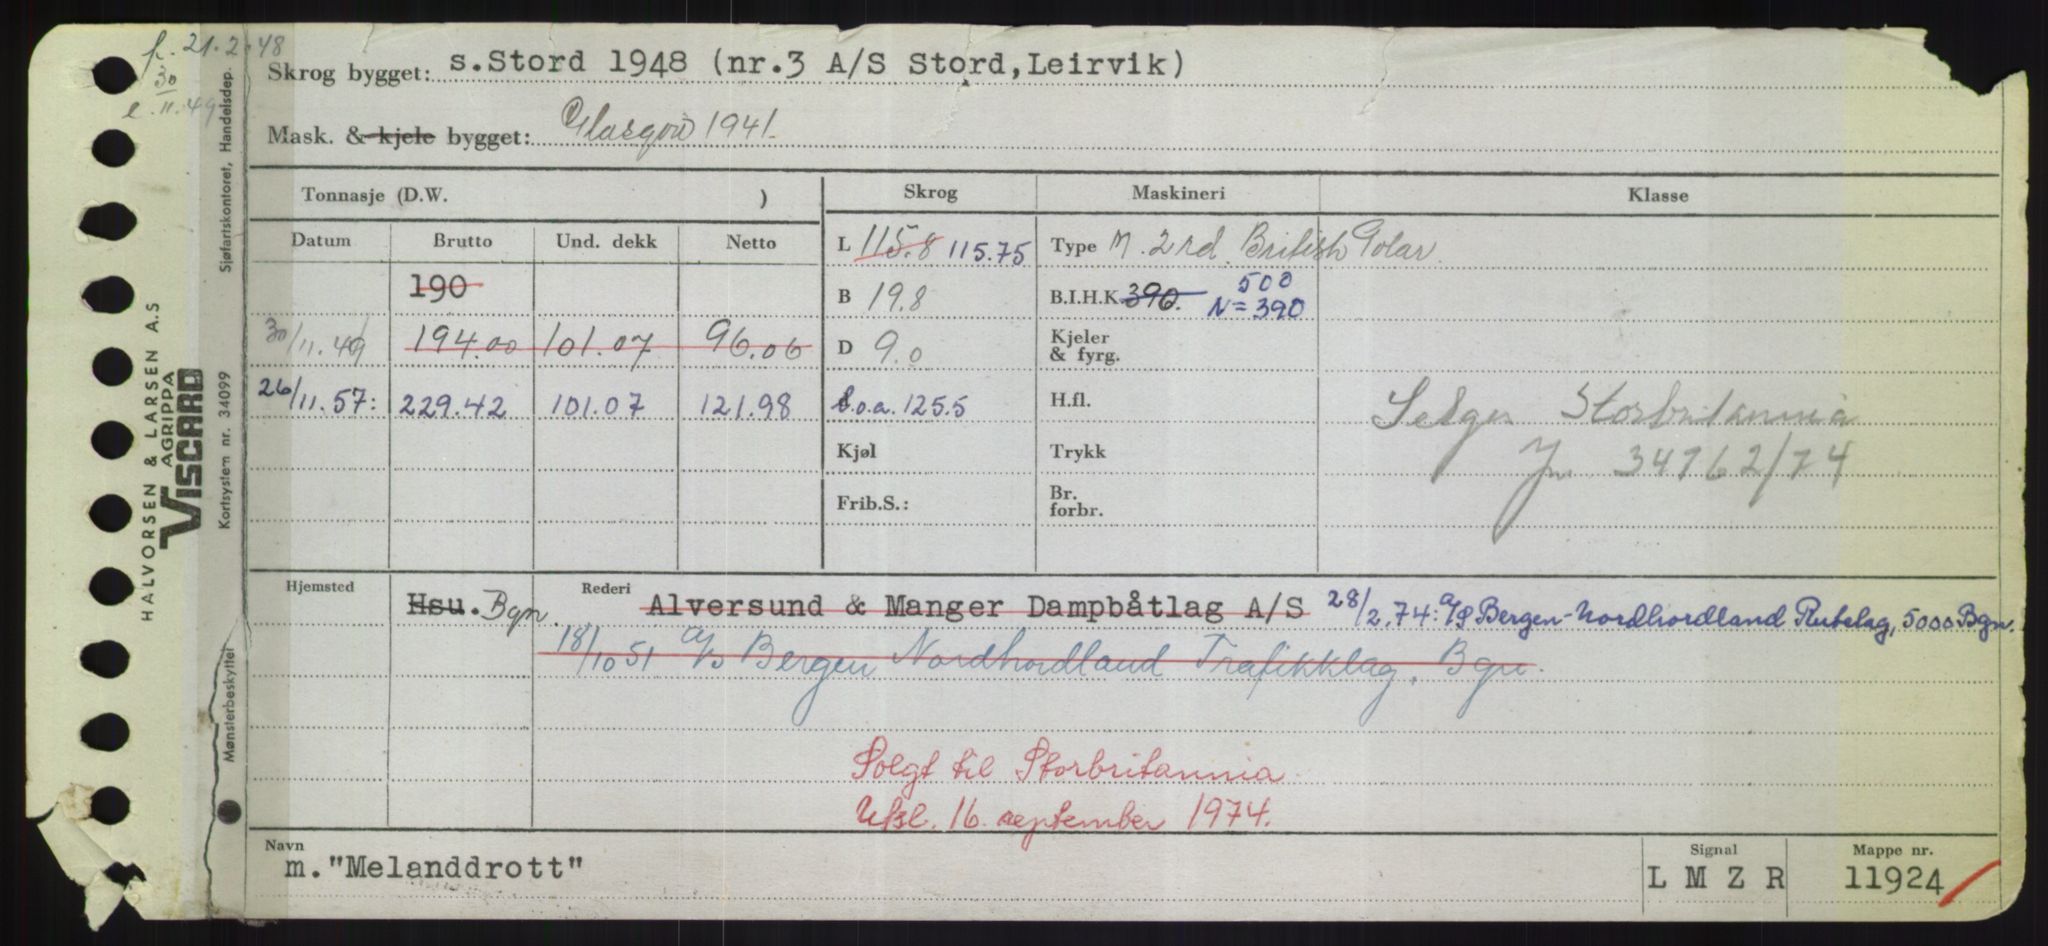 k. 21.2.48
30
l. 11.49
Skrog bygget: s.Stord 1948 (nr.3 A/S Stord,Leirvik)
Mask. & kjele bygget: Glasgow 1941.
Tonnasje (D.W. )
Skrog
Maskineri
Klasse
Datum
Brutto
Und. dekk
Netto
L 115.8 115.75
Type M. 2 rd. British Polar.
190
B 19.8
B.I.H.K. 390. 500
N=390
30/11.49 194.00 101.07 96.06
D 9.0
Kjeler
& fyrg.
26/11.57: 229.42 101.07 121.98
l.o.a. 125.5
H.fl.
Selger Storbritannia
Kjøl
Trykk
Jn 34762/74
Frib.S.:
Br.
forbr.
Hjemsted
Hsu. Bgn.
Rederi
Alversund & Manger Dampbåtlag A/S 28/2.74: A/S Bergen-Nordhordland Rutelag, 5000 Bgn.
18/10 51 A/S Bergen Nordhordland Trafikklag, Bgn.
Solgt til Storbritannia
Utsl. 16. september 1974.
Navn
m."Melanddrott"
Signal
L M Z R
Mappe nr.
11924
HALVORSEN & LARSEN A.S
AGRIPPA
VISCARD
Sjøfartskontoret, Handelsdep.
Kortsystem nr. 34099
Mønsterbeskyttet